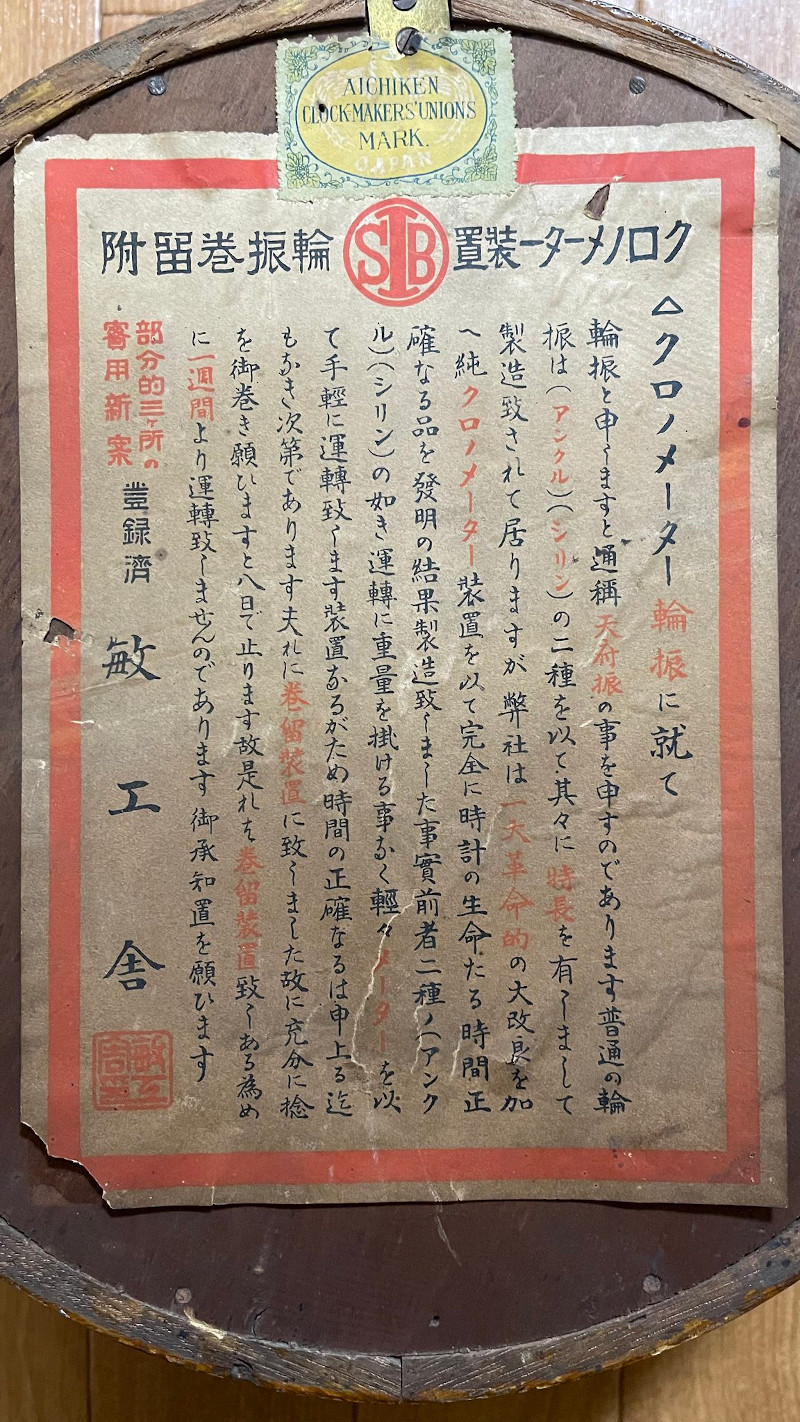 AICHIKEN
CLOCK-MAKERS'UNIONS
MARK.
JAPAN
クロノメーター装置 SIB 輪振巻留附
△クロノメーター輪振に就て
輪振と申しますと通稱天府振の事を申すのであります普通の輪
振は(アンクル)(シリン)の二種を以て其々に特長を有しまして
製造致されて居りますが弊社は一大革命的の大改良を加
へ純クロノメーター装置を以て完全に時計の生命たる時間正
確なる品を發明の結果製造致しました事實前者二種ノ(アンク
ル)(シリン)の如き運轉に重量を掛ける事なく輕々メーターを以
て手輕に運轉致します装置なるがため時間の正確なるは申上る迄
もなき次第であります夫れに巻留装置に致しました故に充分に捻
を御巻き願ひますと八日で止ります故是れを巻留装置致しある為め
に一週間より運轉致しませんのであります御承知置を願ひます
部分的三ヶ所の
實用新案
登録濟
敏工舎